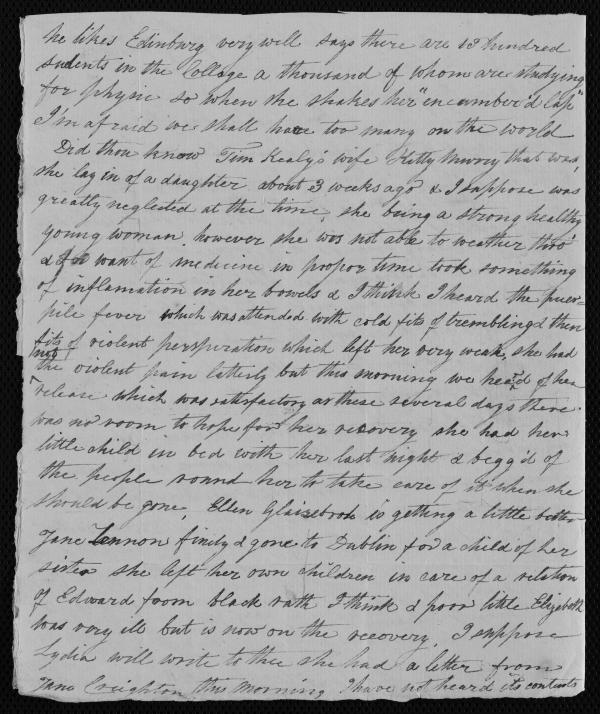 he likes Edinburg very well says there are 18 hundred
sudents in the Collage a thousand of whom are studying
for physic so when she shakes her "encumber'd lap"
I'm afraid we shall have too many on the world
Did thou know Tim Kealy's wife Kitty that was,
she lay in of a daughter about 3 weeks ago & I suppose was
greatly neglected at the time, she being a strong healthy
young woman however she was not able to weather thro'
& for want of medicine in propor time took something
of inflamation in her bowels & I think I heard the puer-
pile fever which was attended with cold fits of trembling & then
fits of violent perspiration which left her very weak, she had
not
the violent pain latterly but this morning we heard of her
release which was satisfactory as these several days there
was no room to hope for her recovery she had her
little child in bed with her last night & begg'd of
the people round her to take care of it when she
should be gone, Ellen Glaizebrook is getting a little better
Jane Lennon finely & gone to Dublin for a child of her
sister she left her own children in care of a relation
of Edward from black rath I think & poor little Elizabeth
was very ill but is now on the recovery, I suppose
Lydia will write to thee she had a letter from
Jane Creighton this morning I have not heard its contents